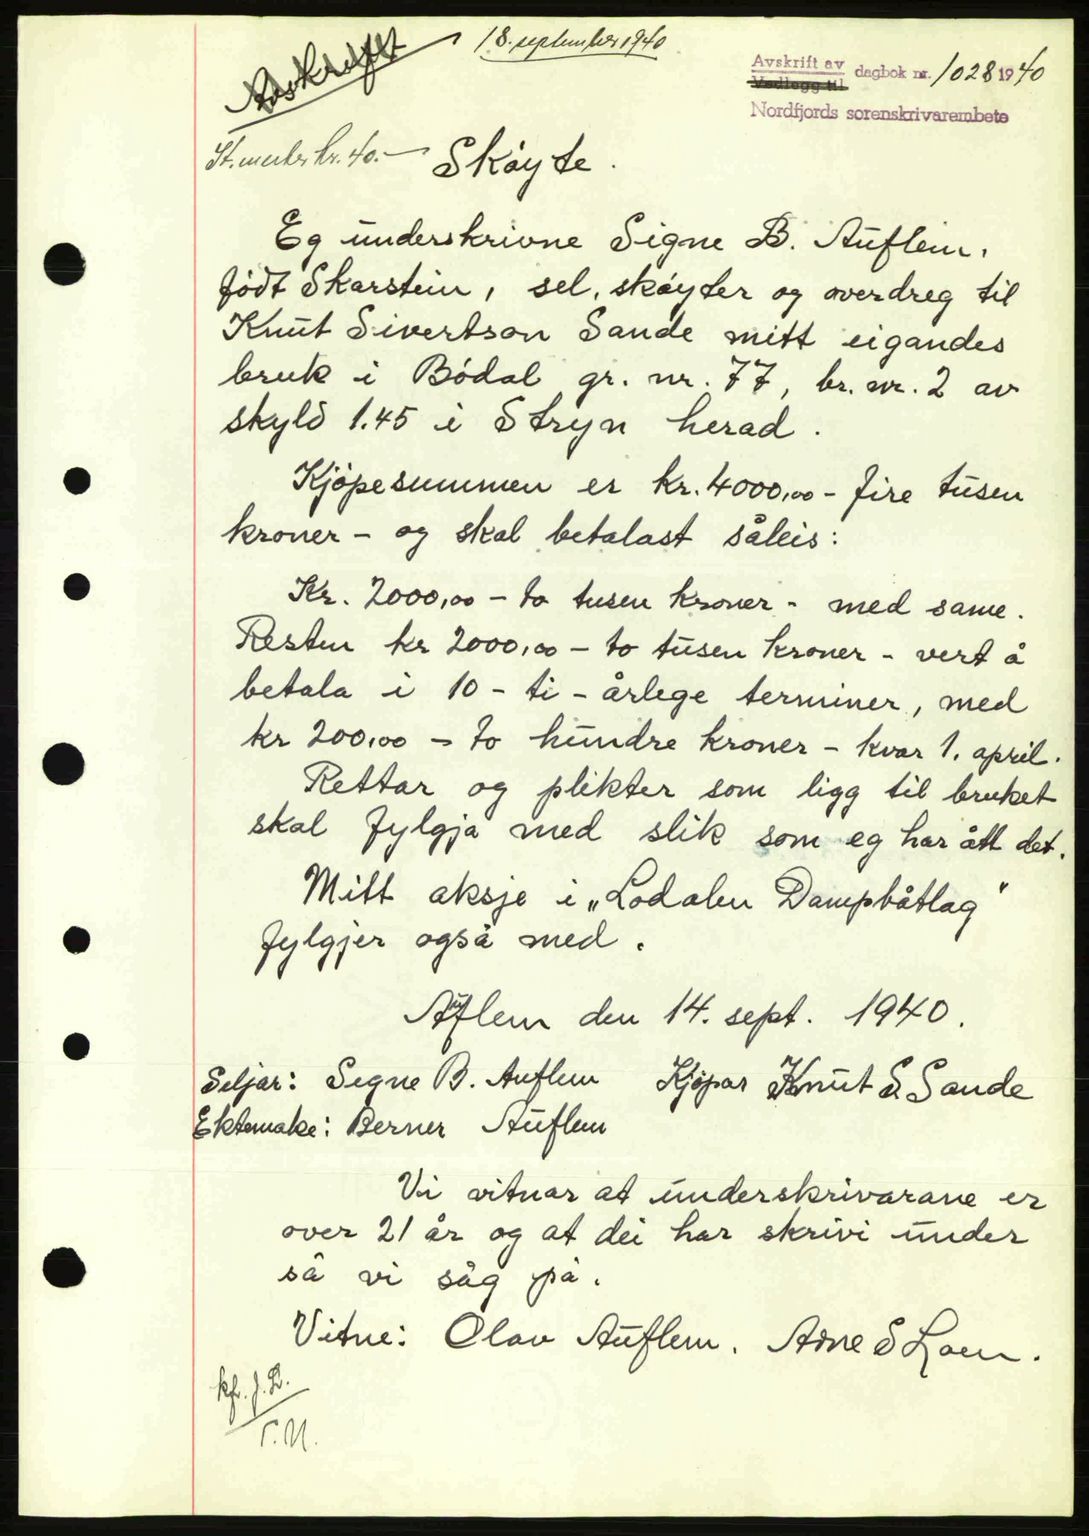 Avskrift
18. september 1940
Avskrift av
Vedlegg til
dagbok nr. 1028 1940
Nordfjords sorenskrivarembete
St.merke kr. 40.-
Skøyte.
Eg underskrivne Signe B. Auflem,
født Skarstein, sel, skøyter og overdreg til
Knut Sivertson Sande mitt eigandes
bruk i Bødal gr. nr. 77, br. nr. 2 av
skyld 1.45 i Stryn herad.
Kjøpesummen er kr. 4000,00 - fire tusen
kroner - og skal betalast såleis:
Kr. 2000,00 - to tusen kroner - med same.
Resten kr 2000,00 - to tusen kroner - vert å
betala i 10 - ti - årlege terminer, med
kr 200,00 - to hundre kroner - kvar 1. april.
Rettar og plikter som ligg til bruket
skal fylgja med slik som eg har ått det.
Mitt aksje i „Lodalen Dampbåtlag"
fylgjer også med.
Auflem den 14. sept. 1940.
Seljar: Signe B. Auflem Kjøpar Knut S. Sande
Ektemake: Berner Auflem
Vi vitnar at underskrivarane er
over 21 år og at dei har skrivi under
så vi såg på.
Vitne: Olav Auflem. Arne S Loen.